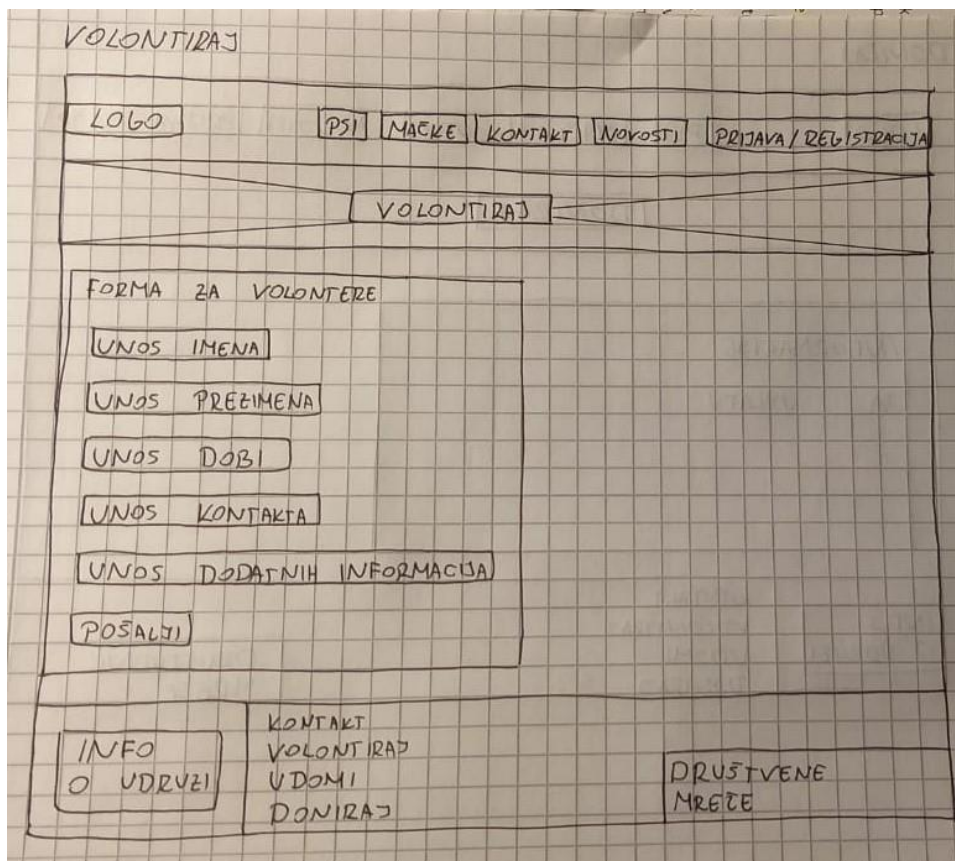 VOLONTIRAJ
LOGO PSI MAČKE KONTAKT NOVOSTI PRIJAVA/REGISTRACIJA
VOLONTIRAJ
FORMA ZA VOLONTERE
UNOS IMENA
UNOS PREZIMENA
UNOS DOBI
UNOS KONTAKTA
UNOS DODATNIH INFORMACIJA
POŠALJI
INFO
O UDRUZI
KONTAKT
VOLONTIRAJ
UDOMI
DONIRAJ
DRUŠTVENE
MREŽE